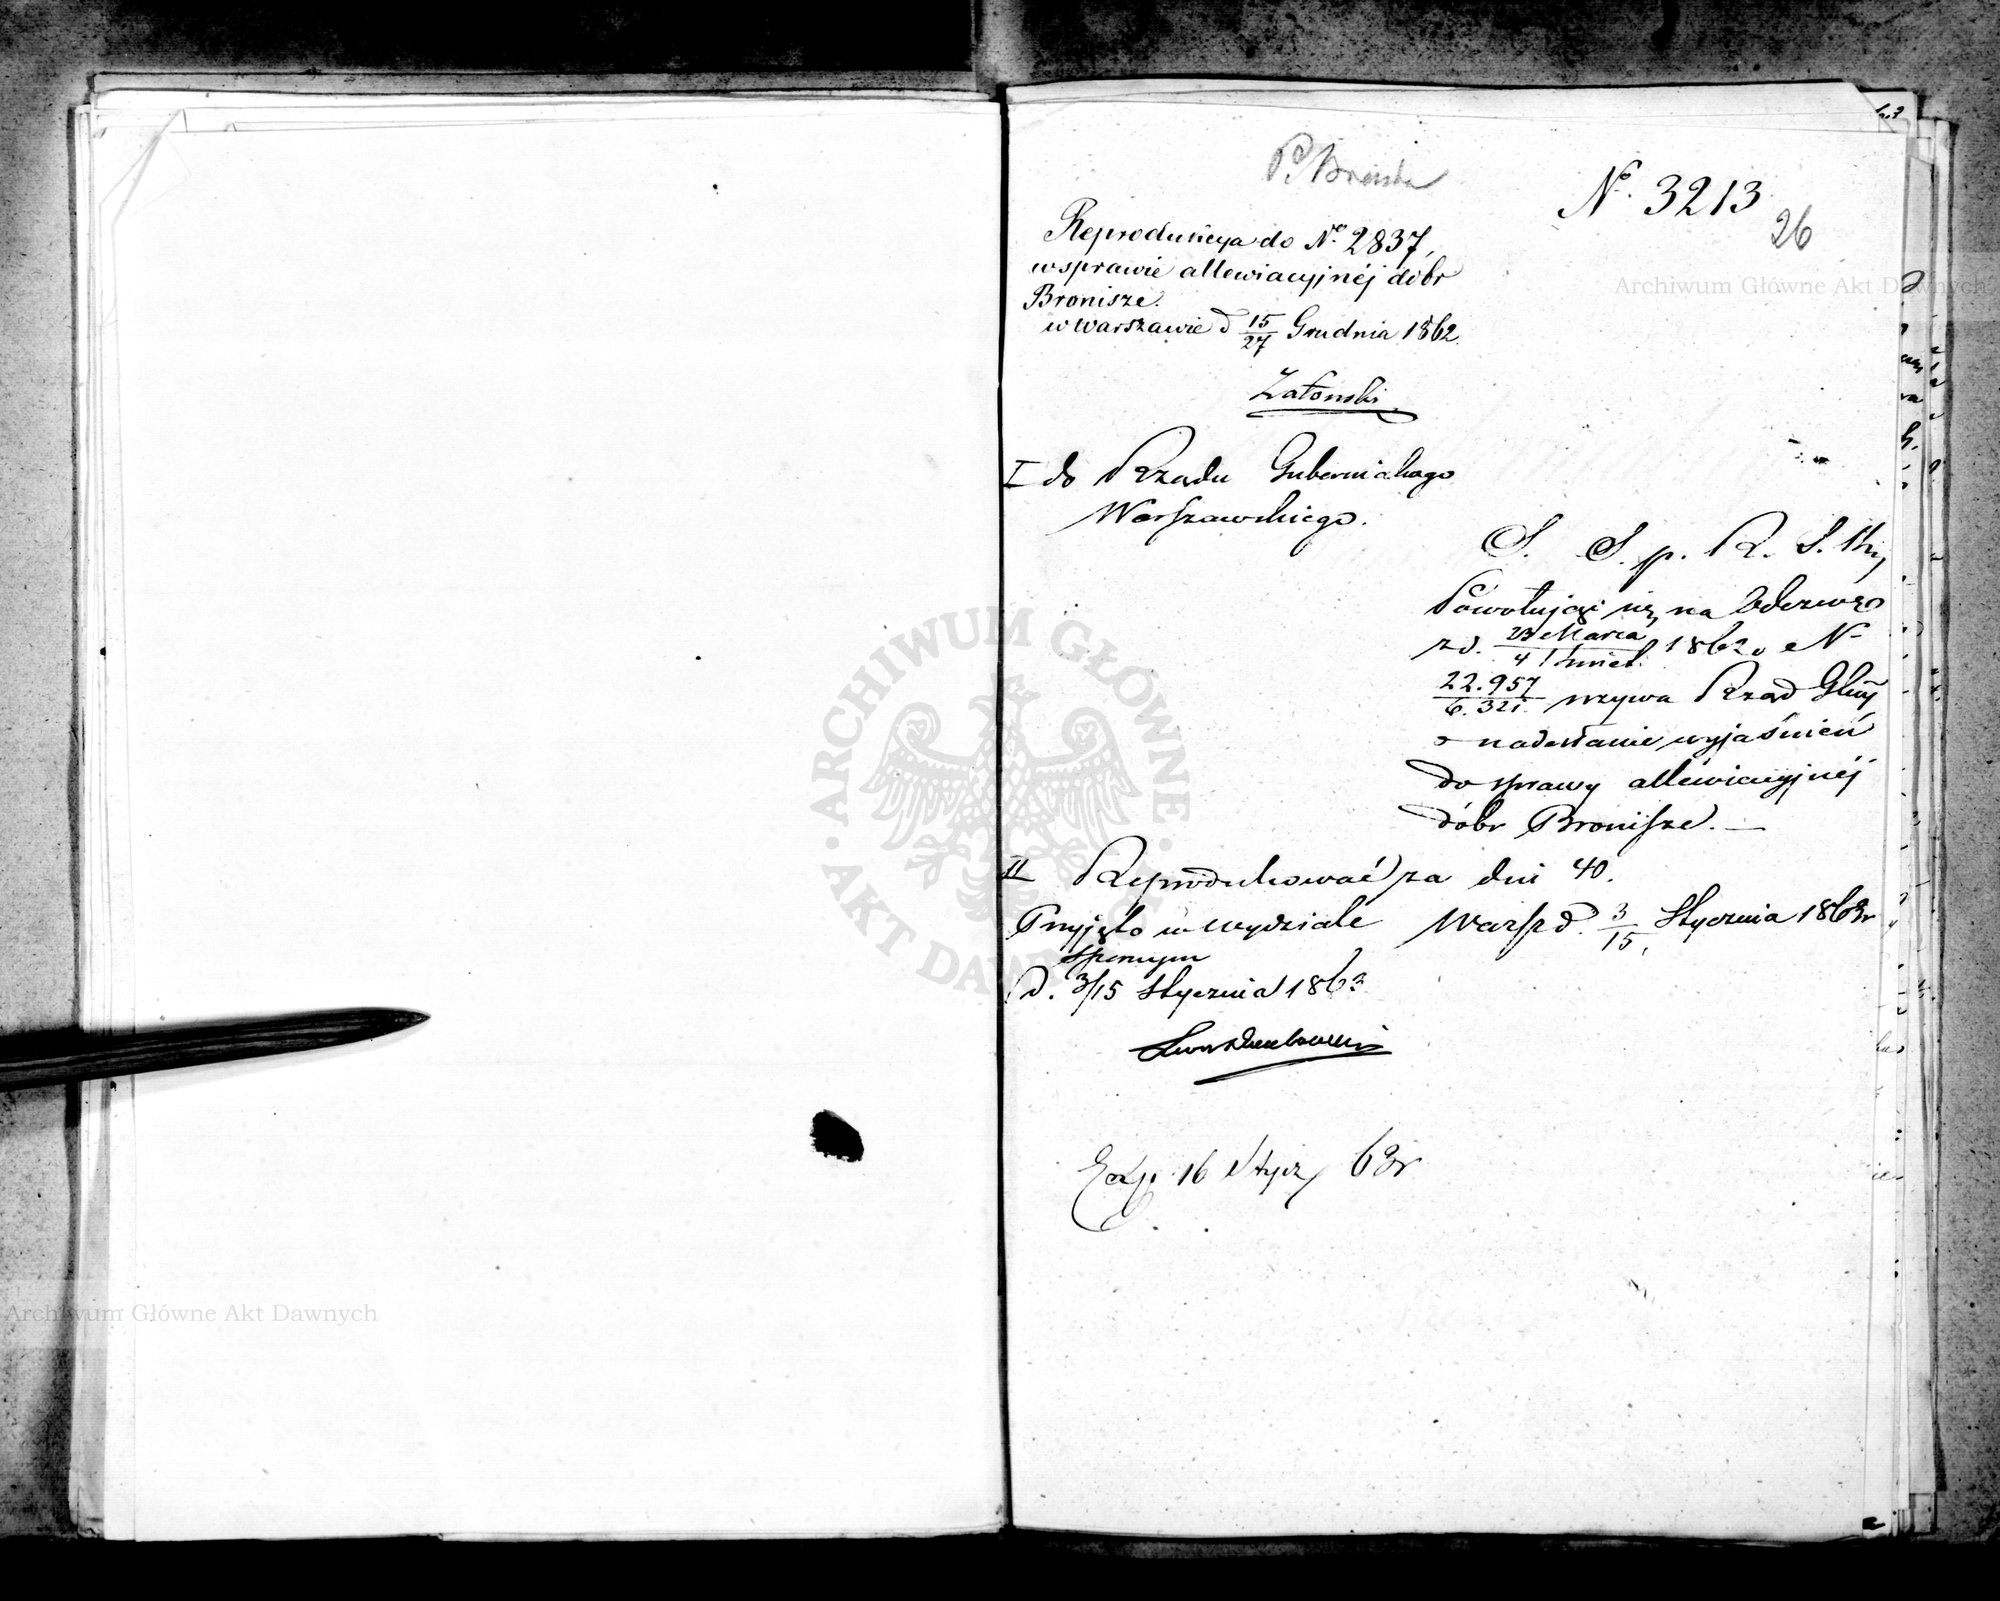 No. 3213
26
Reprodukcya do No. 2837,
w sprawie allewiacyjnéj dóbr
Bronisze.
w Warszawie d 15/27 Grudnia 1862.
Zatonski
I do Rządu Gubernialnego
Warszawskiego.
S. S. p. R. S.
Powołując się na Odezwę
z d. 23 Marca/4 Kwiet. 1862 o N
22.957/6.321 wzywa Rząd Gluy
o nadesłanie wyjaśnień
do sprawy allewiacyjnéj
dóbr Bronisze. —
II Reprodukować za dni 40.
Przyjęto w wydziale
spornym
d. 3/15 Stycznia 1863
Warsz d. 3/15 Stycznia 1863r
Exp. 16 Stycz 63r
Archiwum Główne Akt Dawnych
Archiwum Główne Akt Dawnych
ARCHIWUM GŁÓWNE AKT DAWNYCH